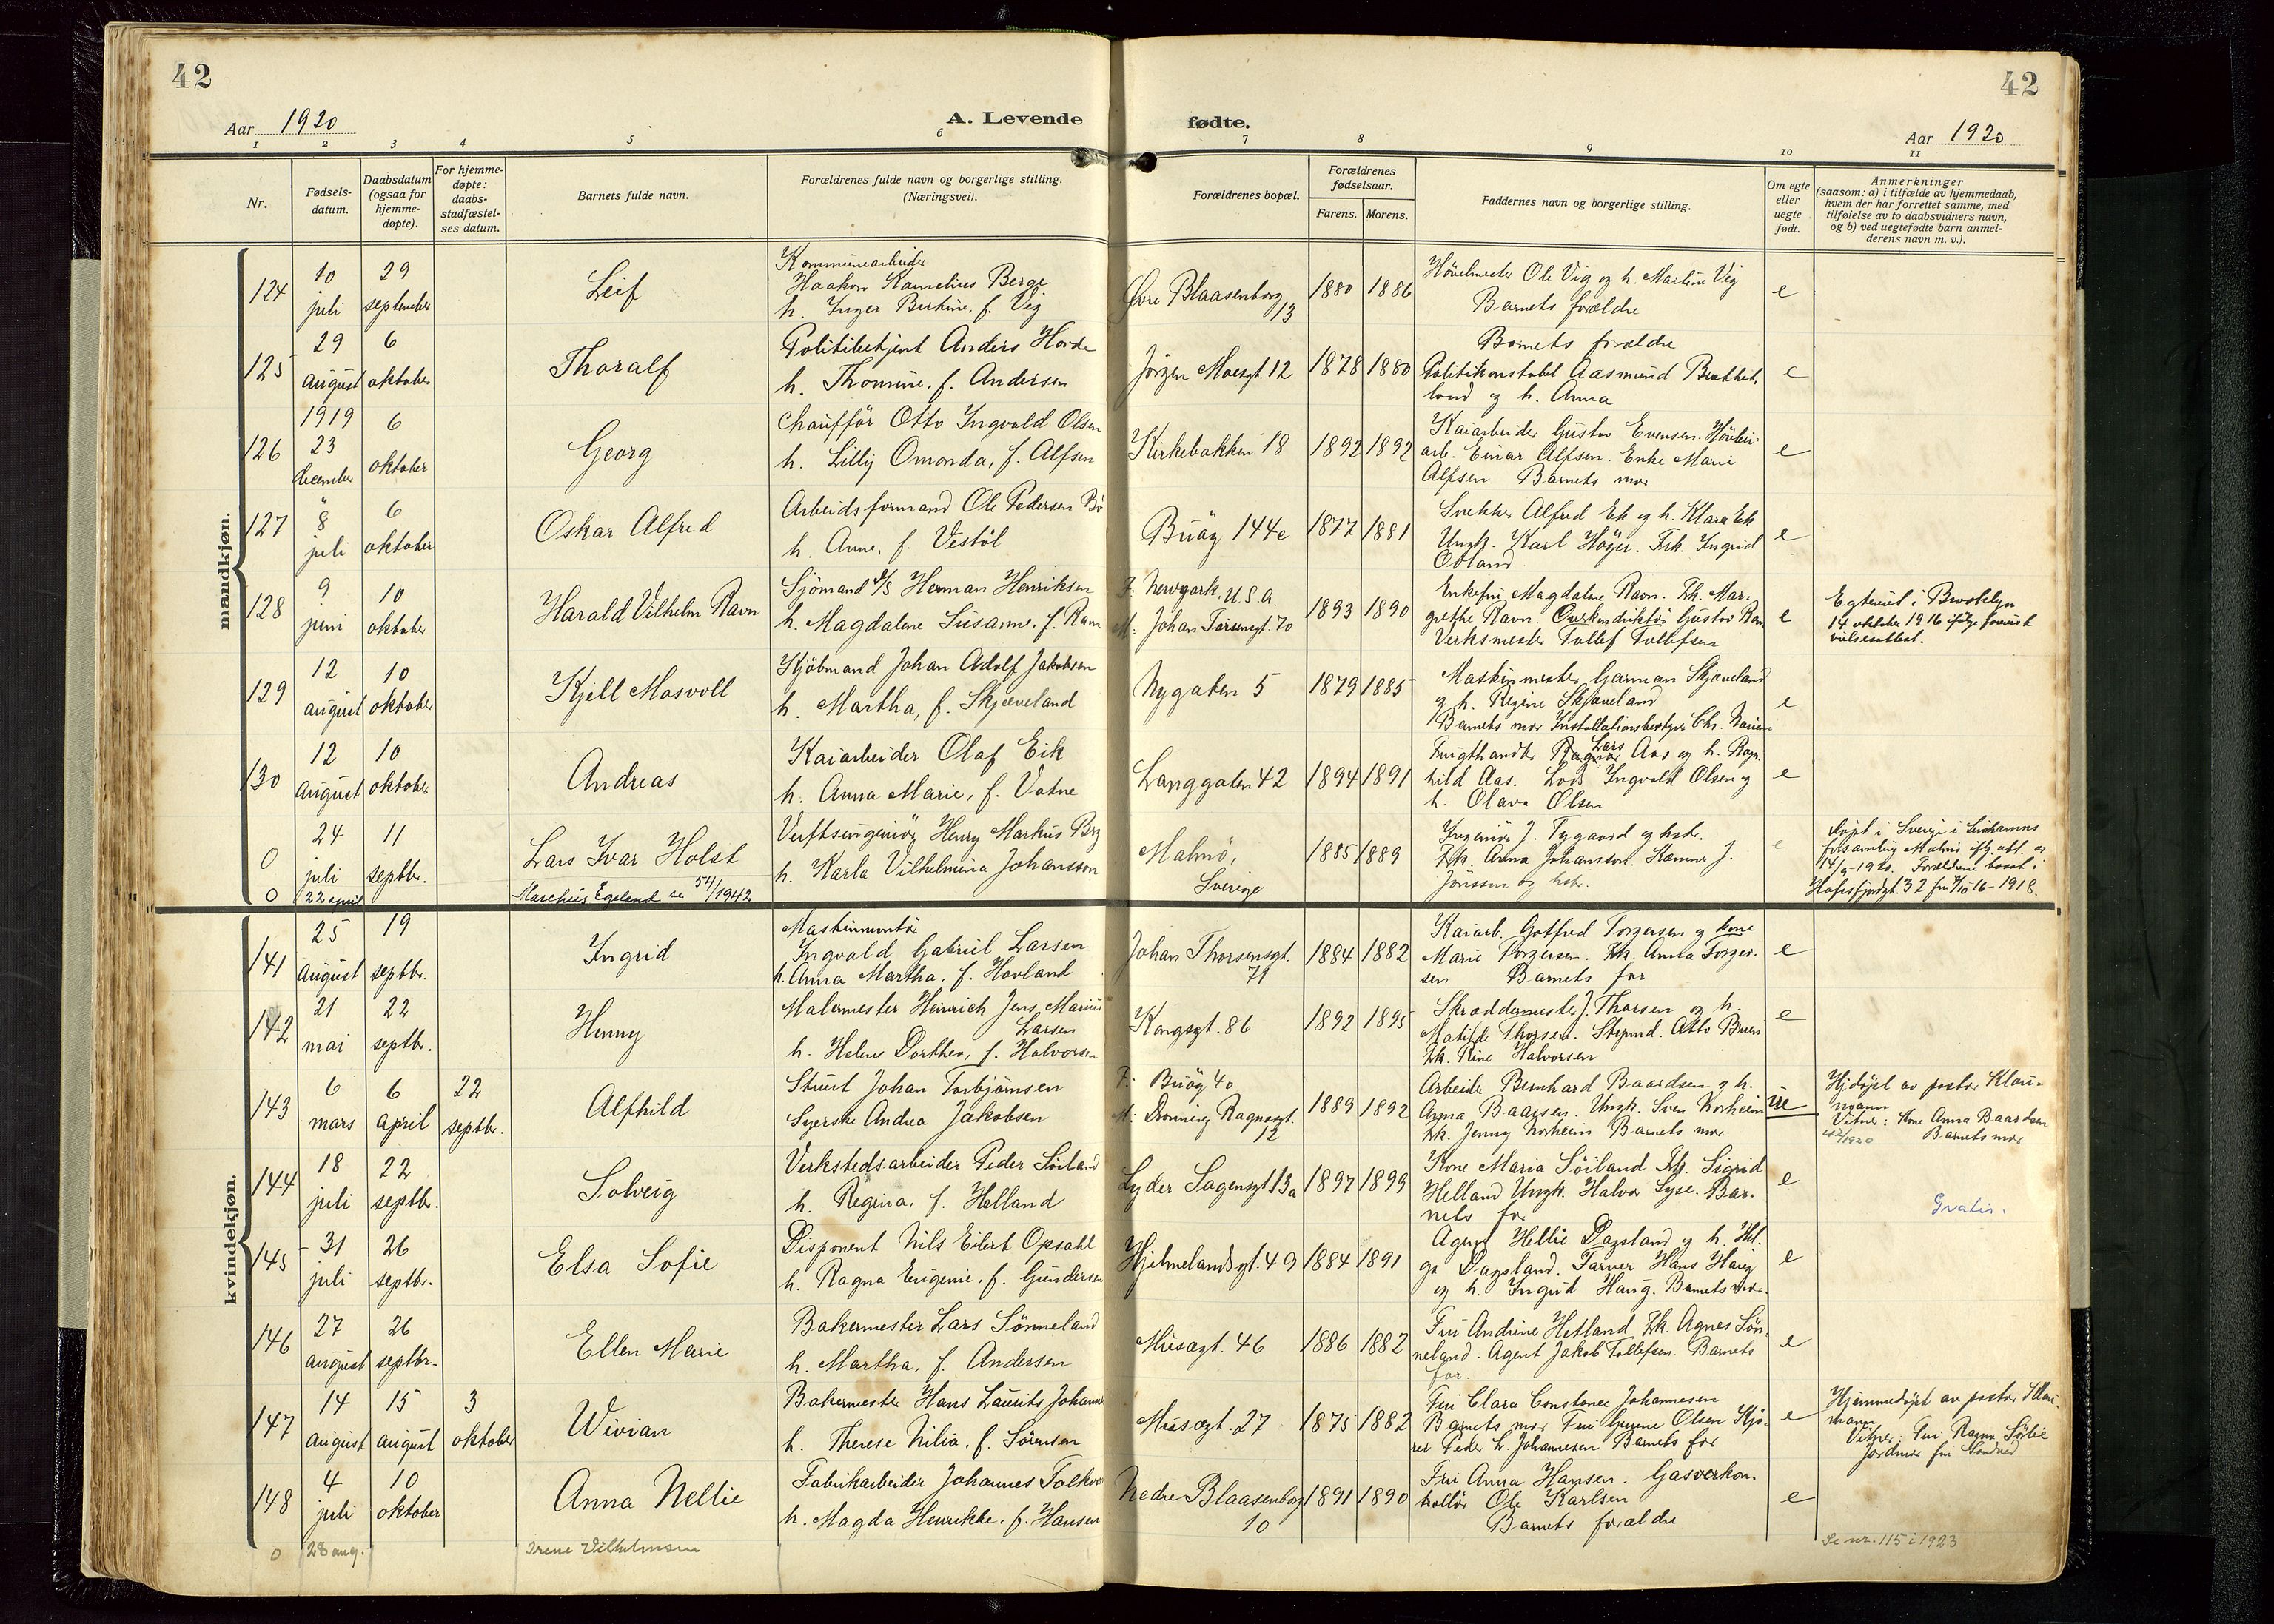 42
42
Aar 1920
A. Levende
fødte.
Aar 1920
1 2 3 4 5 6 7 8 9 10 11
Nr.
Fødsels-
datum.
Daabsdatum
(ogsaa for
hjemme-
døpte).
For hjemme-
døpte:
daabs-
stadfæstel-
ses datum.
Barnets fulde navn.
Forældrenes fulde navn og borgerlige stilling.
(Næringsvei).
Forældrenes bopæl.
Forældrenes
fødselsaar.
Farens. Morens.
Faddernes navn og borgerlige stilling.
Om egte
eller
uegte
født.
Anmerkninger
(saasom: a) i tilfælde av hjemmedaab,
hvem der har forrettet samme, med
tilføielse av to daabsvidners navn,
og b) ved uegtefødte barn anmel-
derens navn m. v.).
mandkjøn.
124
10
juli
29
september
Leif
Kommunearbeider
Haakon Kornelius Berge
h. Inger Berkine, f. Vig
Øvre Blaasenborg
13
1880 1886
Hövelmester Ole Vig og h. Martine Vig
Barnets forældre
e
125
29
august
6
oktober
Thoralf
Politibetjent Anders Horde
h. Thomine, f. Andersen
Jörgen Moesgt. 12
1878 1880
Barnets forældre
Politikonstabel Aasmund Brattet-
land og h. Anna
e
126
1919
23
december
6
oktober
Georg
Chaufför Otto Ingvald Olsen
h. Lilly Omonda, f. Alfsen
Kirkebakken 18
1892 1892
Kaiarbeider Gustav Evensen. Hövleri-
arb. Einar Alfsen. Enke Marie
Alfsen Barnets mor
e
127
8
juli
6
oktober
Oskar Alfred
Arbeidsformand Ole Pedersen Bö
h. Anne, f. Vestöl
Buöy 144e
1877 1881
Snekker Alfred Eek og h. Klara Eek
Ungk. Karl Höyer. Frk. Ingrid
e
128
9
juni
10
oktober
Harald Vilhelm Ravn
Sjömand Herman Henriksen
h. Magdalene Susanne, f. Ravn
F: Newyork, U.S.A.
M: Johan Torsensgt. 70
1893 1890
Enkefru Magdalene Ravn. Frk. Mar-
grethe Ravn. Overkonduktör Gustav Ravn
Verksmester Tollef Tollefsen
e
Egteviet i Brooklyn
14 oktober 1916 ifölge forevist
vielsesattest.
129
12
august
10
oktober
Kjell Mosvoll
Kjöbmand Johan Adolf Jakobsen
h. Martha, f. Skjæveland
Nygaten 5
1879 1885
Maskinmester Garman Skjæveland
og h. Regine Skjæveland
Barnets mor Installationsbestyrer Chr.
e
130
12
august
10
oktober
Andreas
Kaiarbeider Olaf Eik
h. Anna Marie, f. Vatne
Langgaten 42
1894 1891
Lars
Frugthandler Ragnar Aas og h. Ragn-
hild Aas. Lods Ingvald Olsen og
h. Olava Olsen
e
0
24
juli
11
septbr.
Lars Ivar Holst
Verftsingeniör Henry Markus Brg
h. Karla Vilhelmina Johansson
Malmö,
Sverige
1885 1889
Ingeniör J. Tygaard og hstr.
Frk. Anna Johansson. Kamrer J.
Jönsson og hstr.
e
döpt i Sverige i Limhamns
forsamling Malmö iflg. att. av
14/9-1920. Forældrene bosat i
Hafrsfjordgt. 32 fra 4/10 16-1918.
0
22 april
Marchus Egeland se 54/1942
kvindekjøn.
141
25
august
19
septbr.
Ingrid
Maskinmontör
Ingvald Gabriel Larsen
h. Anna Martha, f. Hovland
Johan Thorsensgt.
71
1884 1882
Kaiarb. Gotfred Torgersen og kone
Marie Torgersen. Frk. Anna Torger-
sen Barnets far
e
142
21
mai
22
septbr.
Henny
Malermester Heinrich Jens Marius
Larsen
h. Helene Dorthea, f. Halvorsen
Kongsgt. 86
1892 1895
Skræddermester J. Thorsen og h.
Matilde Thorsen. Styrmd. Otto
Frk. Rine Halvorsen
e
143
6
mars
6
april
22
septbr.
Alfhild
Stuert Johan Torbjörnsen
Syerske Andrea Jakobsen
F: Buöy 40
M: Dronning Ragnasgt.
12
1889 1892
Arbeider Bernhard Baardsen og h.
Anna Baarsen. Ungk. Sven Norheim
Frk. Jenny Norheim Barnets mor
ue
Hjdöpt av pastor Klau-
mann
Vitner: Kone Anna Baardsen
Barnets mor
144
18
juli
22
septbr.
Solveig
Verkstedsarbeider Peder Söiland
h. Regina, f. Helland
Lyder Sagensgt 13a
1897 1899
Kone Maria Söiland Frk. Sigrid
Helland Ungk. Halvor Lyse. Bar-
nets far
e
Gratis.
145
31
juli
26
septbr.
Elsa Sofie
Disponent Nils Eilert Opsahl
h. Ragna Eugenie, f. Gundersen
Hjelmelandsgt. 49
1884 1891
Agent Hellie Dagsland og h. Hel-
ga Dagsland. Farver Hans Haug
og h. Ingrid Haug. Barnets mor.
e
146
27
august
26
septbr.
Ellen Marie
Bakermester Lars Sönneland
h. Martha, f. Andersen
Musægt. 46
1886 1882
Fru Andrine Hetland Frk. Agnes Sön-
neland. Agent Jakob Tollefsen. Barnets
far.
e
147
14
august
15
august
3
oktober
Wivian
Bakermester Hans Laurits Johann
h. Therese Nilia, f. Sörensen
Musægt. 27
1875 1882
Fru Clara Constance Johannesen
Barnets mor Fru Gurine Olsen Kjö-
rer Peder L. Johannesen Barnets far
e
Hjemmedöpt av pastor Klau-
mann
Vitner: Fru Ragna Sölie
Jordmor fru Sandved
148
4
juli
10
oktober
Anna Nellie
Fabrikarbeider Johannes Falkv
h. Magda Henrikke, f. Hansen
Nedre Blaasenborg
10
1891 1890
Fru Anna Hansen. Gasverkon-
trollör Ole Karlsen
Barnets forældre
e
0
28 aug.
Irene Vilhelmsen
Se nr. 115 i 1923